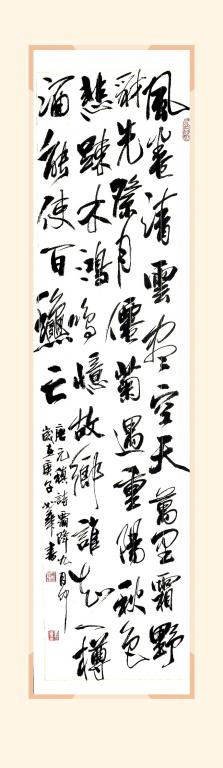 風卷清雲尽空天萬里霜野
豺先祭月僊菊遇重陽秋色
悲疎木鴻鳴憶故鄉誰知一樽
酒能使百龝亡
唐元稹詩霜降九月中
歲在庚子華書